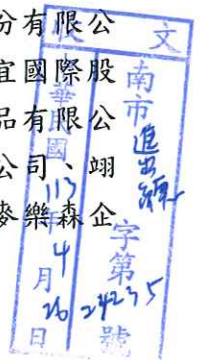 份有限公
宜國際股
品有限公
公司、翊
麥樂森企
收文
中華民國113年4月26日
南市進出字第24235號